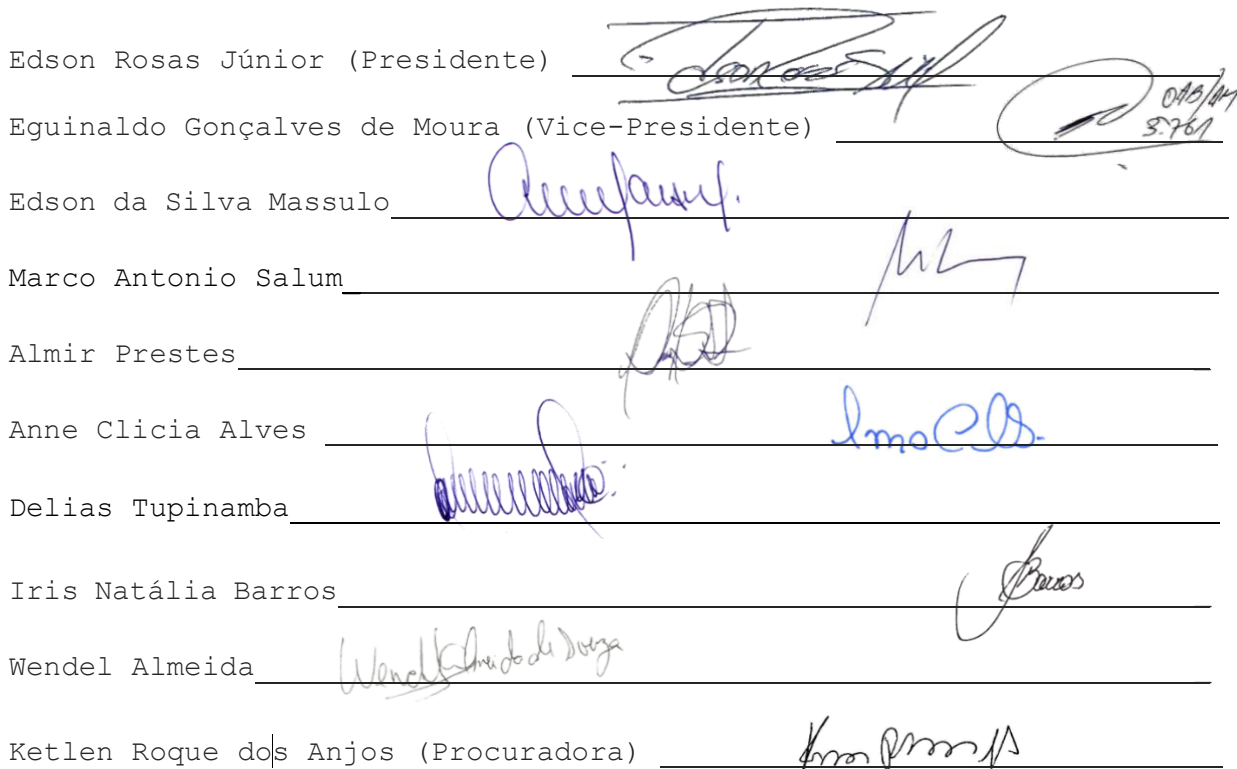 Edson Rosas Júnior (Presidente)
OAB/AM
Eguinaldo Gonçalves de Moura (Vice-Presidente)
5.761
Edson da Silva Massulo
Marco Antonio Salum
Almir Prestes
Anne Clicia Alves
Delias Tupinamba
Iris Natália Barros
Barros
Wendel Almeida
Wendel Almeida de Souza
Ketlen Roque dos Anjos (Procuradora)